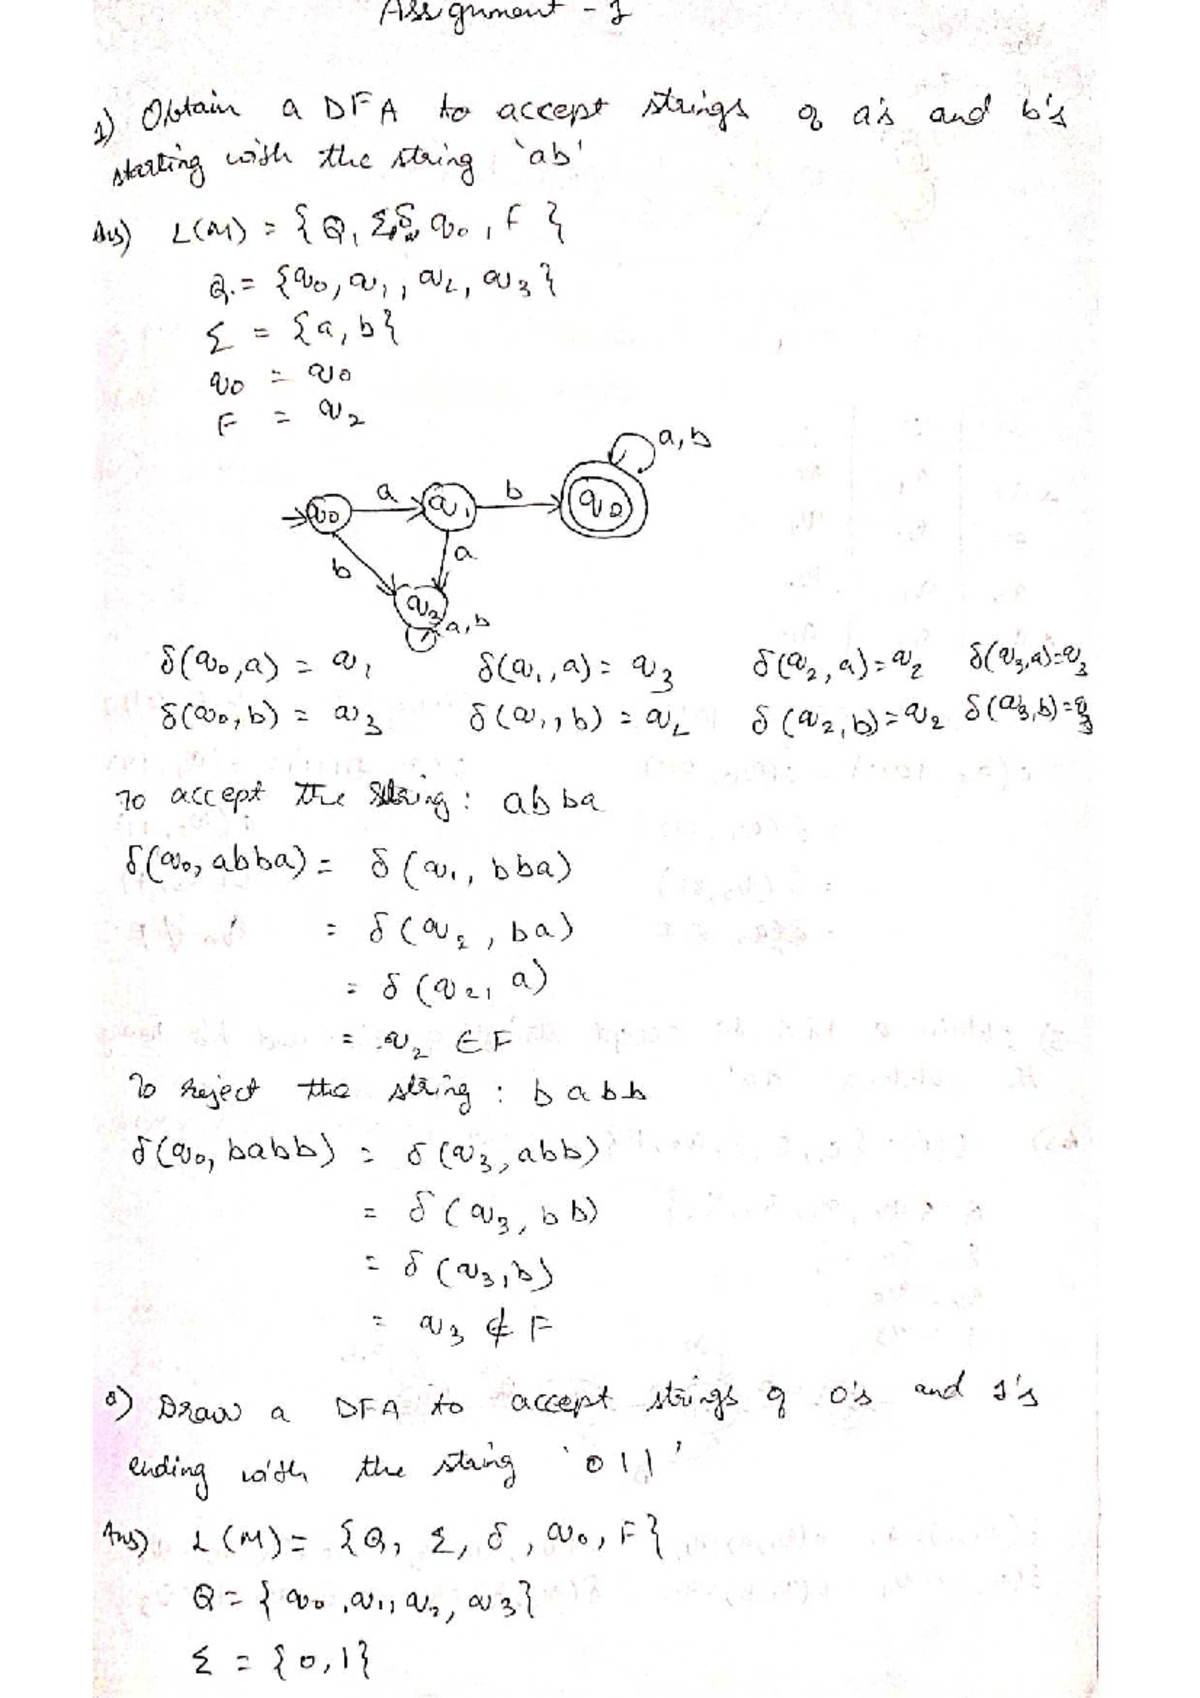 Assignment - 1
1) Obtain a DFA to accept strings of a's and b's
starting with the string 'ab'
Ans) L(M) = {Q, Σ, δ, q0, F}
Q = {q0, q1, q2, q3}
Σ = {a, b}
q0 = q0
F = q2
a, b
q0 a q1 b q0
b a
q3 a, b
δ(q0, a) = q1 δ(q1, a) = q3 δ(q2, a) = q2 δ(q3, a) = q3
δ(q0, b) = q3 δ(q1, b) = q2 δ(q2, b) = q2 δ(q3, b) = q3
To accept the string : abba
δ(q0, abba) = δ(q1, bba)
= δ(q2, ba)
= δ(q2, a)
= q2 ∈ F
To reject the string : babb
δ(q0, babb) = δ(q3, abb)
= δ(q3, bb)
= δ(q3, b)
= q3 ∉ F
2) Draw a DFA to accept strings of 0's and 1's
ending with the string '011'
Ans) L(M) = {Q, Σ, δ, q0, F}
Q = {q0, q1, q2, q3}
Σ = {0, 1}